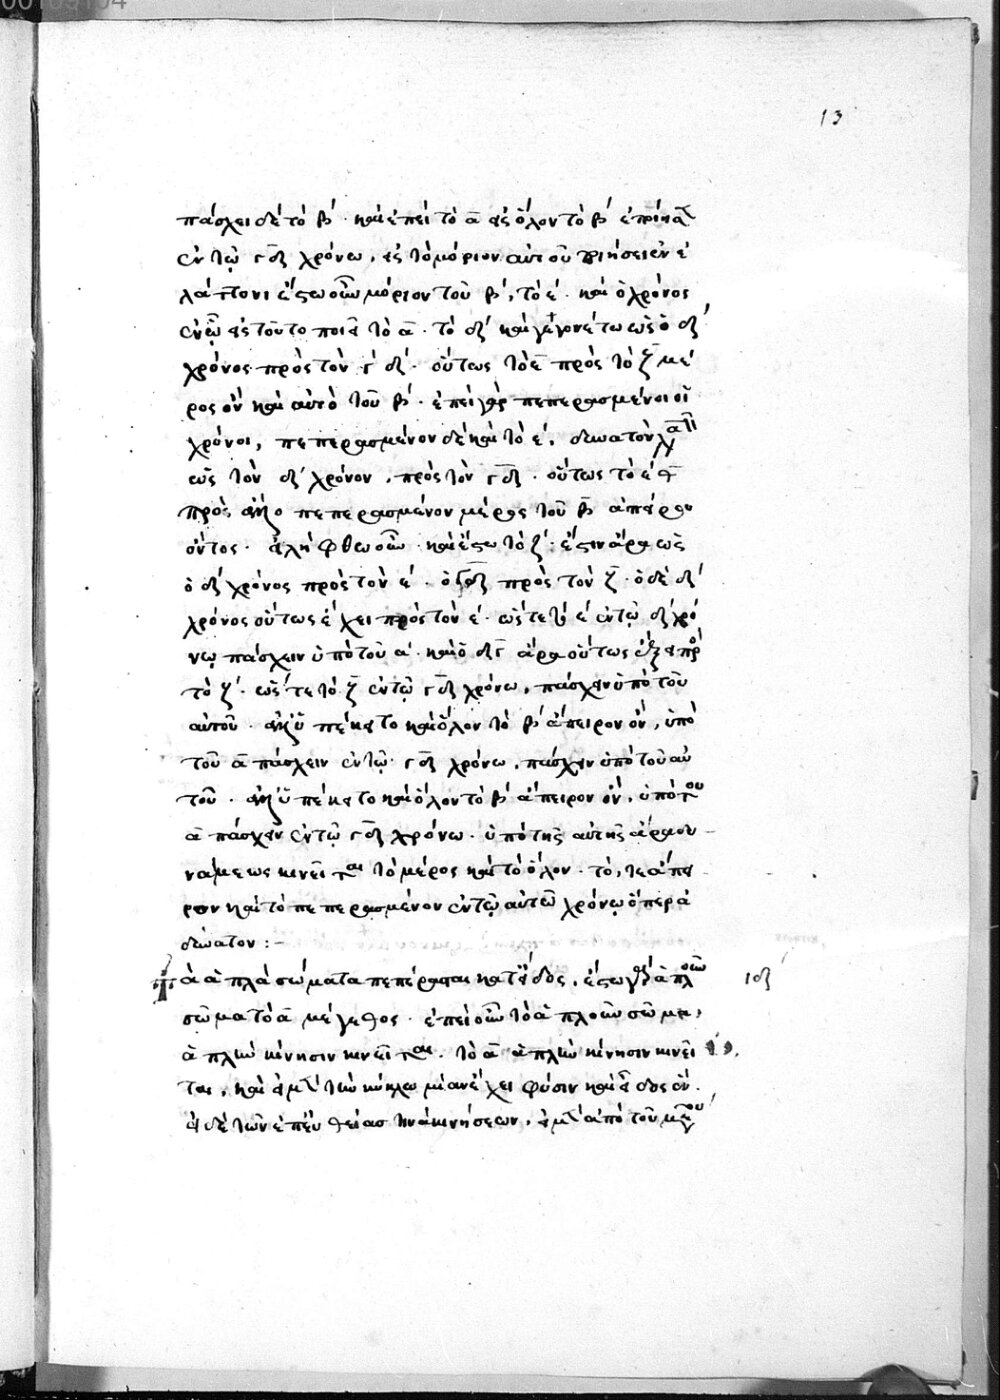 13
πάσχει δὲ τὸ β´. καὶ ἐπεὶ τὸ ᾱ εἰς ὅλον τὸ β´
ἐν τῷ γδ χρόνω, εἰς τὸ μόριον αὐτοῦ ποιήσειεν ἐ
λάττονι ἔστω οὖν μόριον τοῦ β´, τὸ ε´. καὶ ὁ χρόνος
ἐν ᾧ εἰς τοῦτο ποιεῖ τὸ ᾱ. τὸ δ´ καὶ γεγονέτω ὡς ὁ δ´
χρόνος πρὸς τὸν γ´ δ´. οὕτως τὸ ε̄ πρὸς τὸ ζ̄ μέ
ρος ὂν καὶ αὐτὸ τοῦ β´. ἐπεὶ γὰρ πεπερασμένοι οἱ
χρόνοι, πεπερασμένον δὲ καὶ τὸ ε´. δυνατὸν
ὡς τὸν δ´ χρόνον, πρὸς τὸν γδ. οὕτως τὸ ε´
πρὸς ἄλλο πεπερασμένον μέρος τοῦ β̄ ἀπείρου
ὄντος. εἰλήφθω οὖν. καὶ ἔστω τὸ ζ´. ἔστιν ἄρα ὡς
ὁ δ´ χρόνος πρὸς τὸν ε´. ὁ γδ πρὸς τὸν ζ̄. ὁ δὲ δ´
χρόνος οὕτως ἔχει πρὸς τὸν ε´. ὥστε τὸ ε´ ἐν τῷ δ´ χρό
νῳ πάσχειν ὑπὸ τοῦ α´. καὶ ὁ δγ ἄρα οὕτως ἕξει πρὸς
τὸ ζ´. ὥστε τὸ ζ̄ ἐν τῷ γδ χρόνω, πάσχειν ὑπὸ τοῦ
αὐτοῦ. ἀλλ' ὑπέκειτο καὶ ὅλον τὸ β´ ἄπειρον ὂν, ὑπὸ
τοῦ ᾱ πάσχειν ἐν τῷ γδ χρόνω, πάσχειν ὑπὸ τοῦ αὐ
τοῦ. ἀλλ' ὑπέκειτο καὶ ὅλον τὸ β´ ἄπειρον ὂν, ὑπὸ τοῦ
ᾱ πάσχειν ἐν τῷ γδ χρόνω. ὑπὸ τῆς αὐτῆς ἄρα δυ
νάμεως κινεῖται τὸ μέρος καὶ τὸ ὅλον. τό, τε ἄπει
ρον καὶ τὸ πεπερασμένον ἐν τῷ αὐτῶ χρόνῳ ὅπερ ἀ
δύνατον :-
τὰ ἁπλᾶ σώματα πεπέρασται κατ' εἶδος, ἔστω γὰρ ἁπλοῦν
σῶμα τὸ ᾱ μέγεθος. ἐπεὶ οὖν τὸ ἁπλοῦν σῶμα,
ἁπλῆν κίνησιν κινεῖται. τὸ ᾱ ἁπλῆν κίνησιν κινεῖ
ται, καὶ εἰ μὲν τὴν κύκλω μίαν ἕχει φύσιν καὶ ἓν εἶδος ὄν.
εἰ δὲ τῶν ἐπ' εὐθείας τινὰ κινήσεων, εἰ μὲν ἀπὸ τοῦ μέσου
ιδ